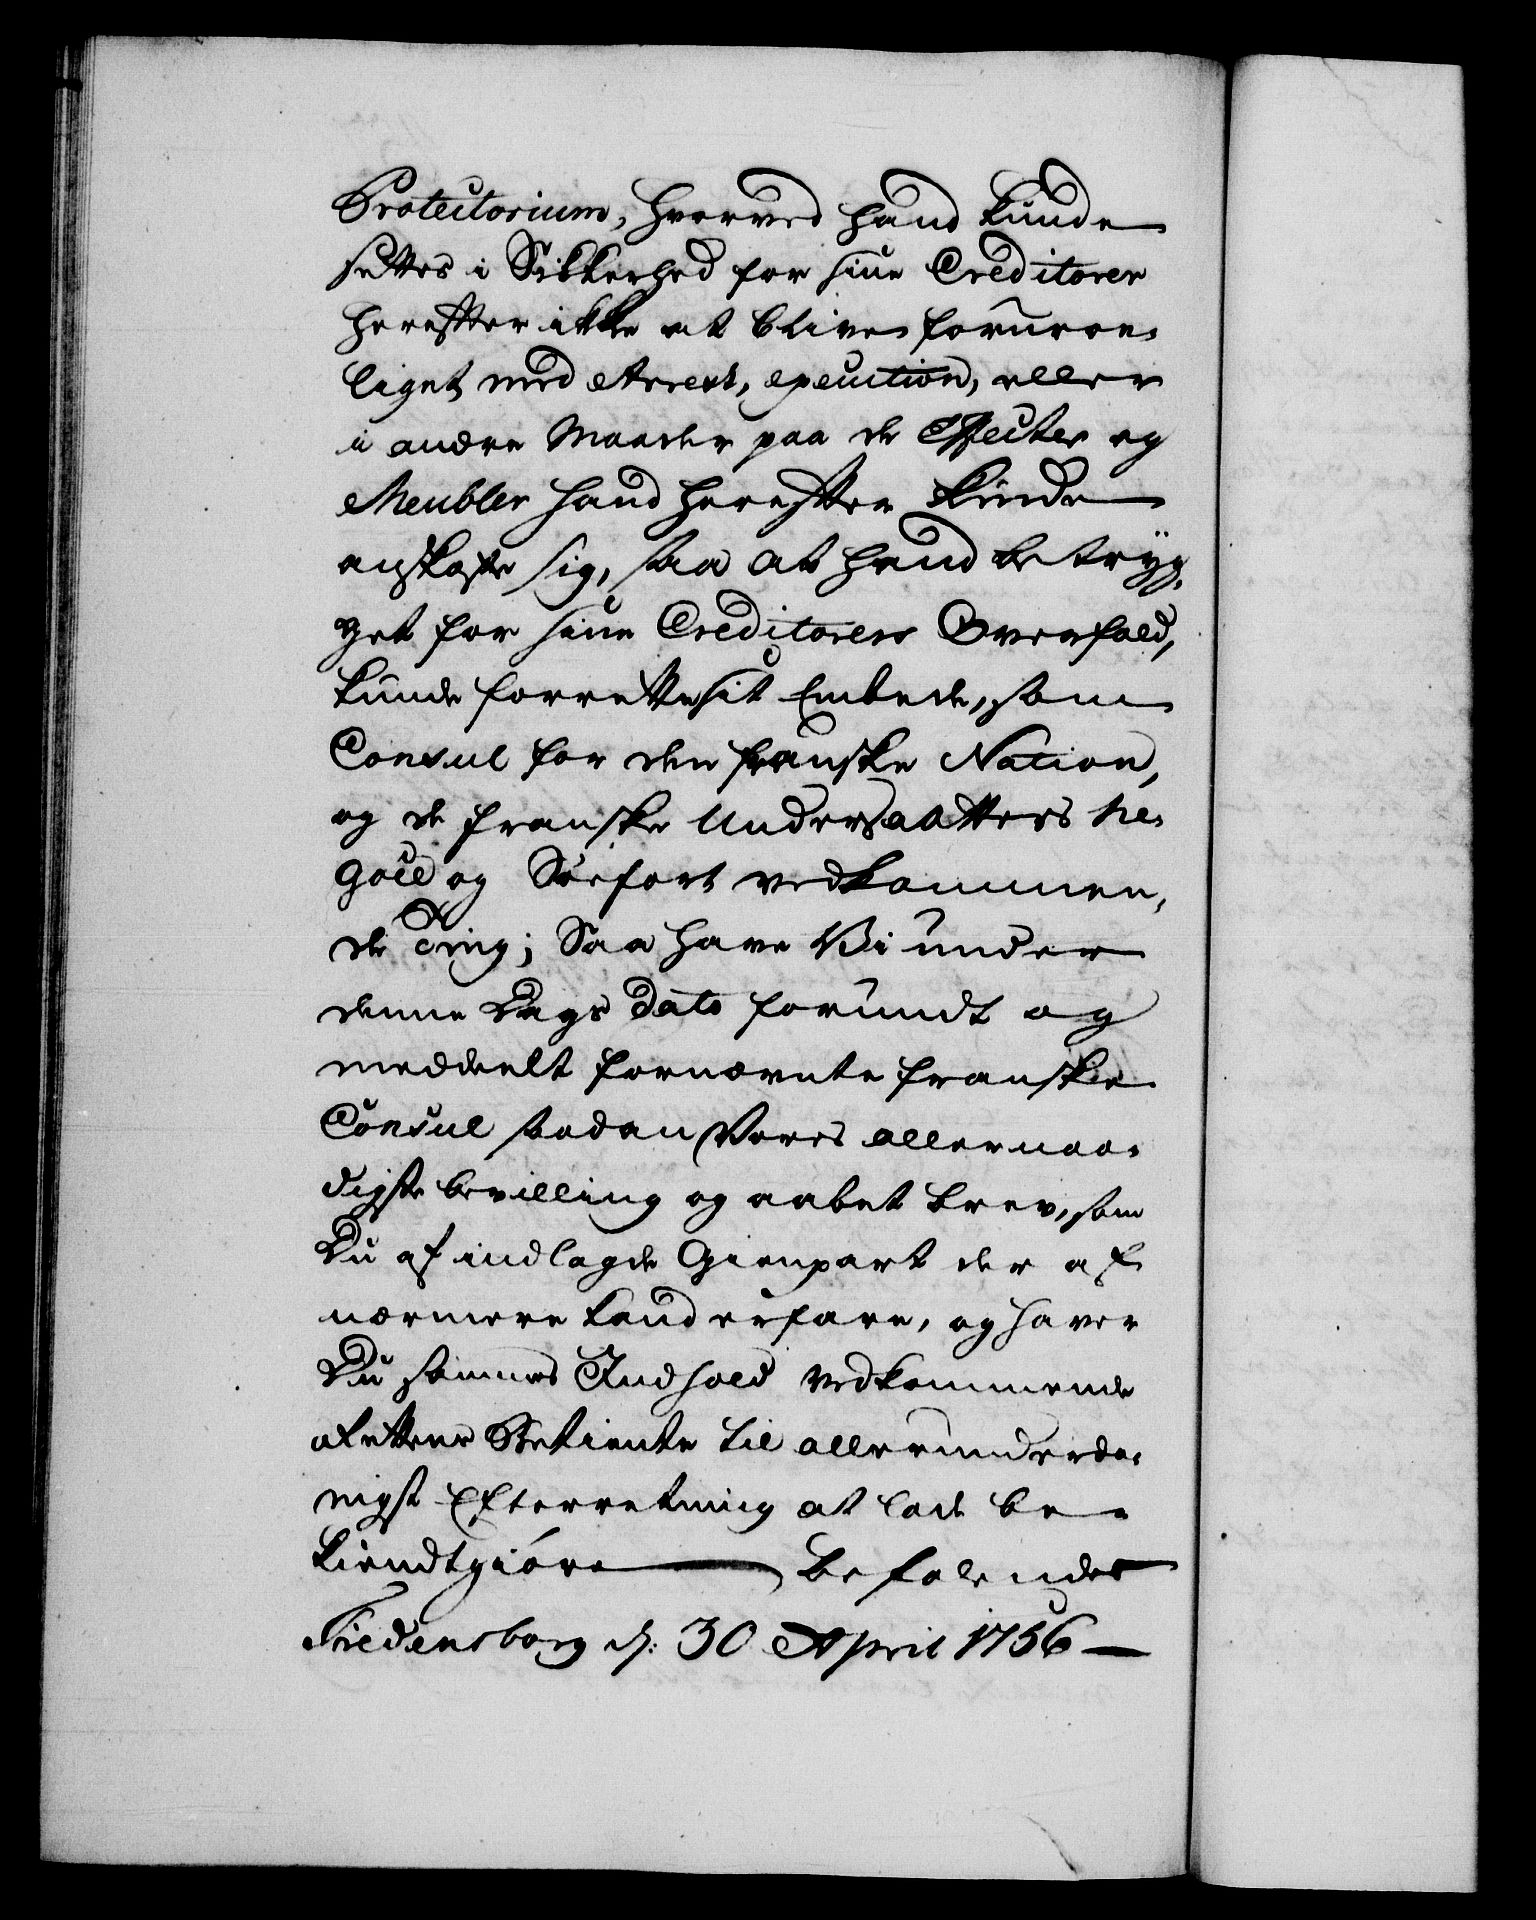 Protectorium, hvorved hand kunde
settes i Sikkerhed for sine Creditorer
herefter ikke at blive foruroe-
liget med Arrest, execution, eller
i andre Maader paa de Effecter og
Meubler hand herefter kunde
anskaffe sig, saa at hand betryg-
get for sine Creditorers Overfald,
kunde forrette sit Embede, som
Consul for den franske Nation,
og de franske Undersaatters Ne-
goce og Søefart vedkommen-
de Ting; Saa have Vi under
denne Dags Dato forundt og
meddeelt fornævnte franske
Consul saadan Vores allernaa-
digste bevilling og aabet brev, som
Du af indlagde Gienpart der af
nærmere kand erfare, og haver
Du sammes Indhold vedkommende
til allerunderda-
nigst Efterretning at lade be-
kiendtgiøre befalendes
Fredensborg d: 30 April 1756